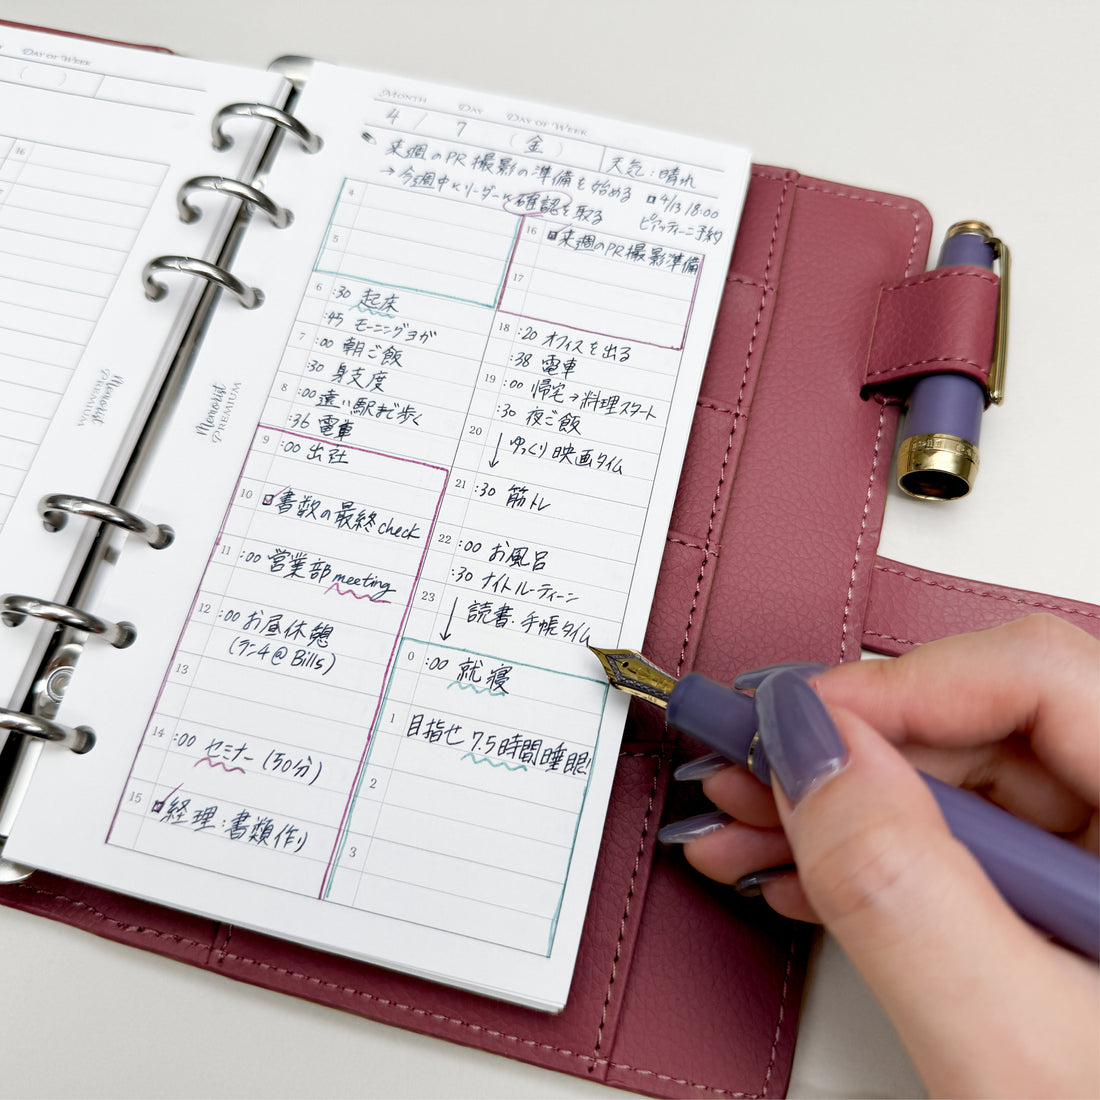 DAY OF WEEK
( )
16
17
Memorist
PREMIUM
Memorist
PREMIUM
MONTH DAY DAY OF WEEK
4 / 7 (金) 天気:晴れ
来週のPR撮影の準備を始める
→今週中にリーダーに確認を取る
4/13 18:00
予約
4
5
6 :30 起床
:45 モーニングヨガ
7 :00 朝ご飯
:30 身支度
8 :00 遠い駅まで歩く
:36 電車
9 :00 出社
10 書類の最終check
11 :00 営業部meeting
12 :00 お昼休憩
(ランチ@Bills)
13
14 :00 セミナー(50分)
15 経理:書類作り
16 来週のPR撮影準備
17
18 :20 オフィスを出る
:38 電車
19 :00 帰宅→料理スタート
:30 夜ご飯
20 ↓ ゆっくり映画タイム
21 :30 筋トレ
22 :00 お風呂
:30 ナイトルーティーン
23 ↓ 読書・手帳タイム
0 :00 就寝
1 目指せ7.5時間睡眠!
2
3